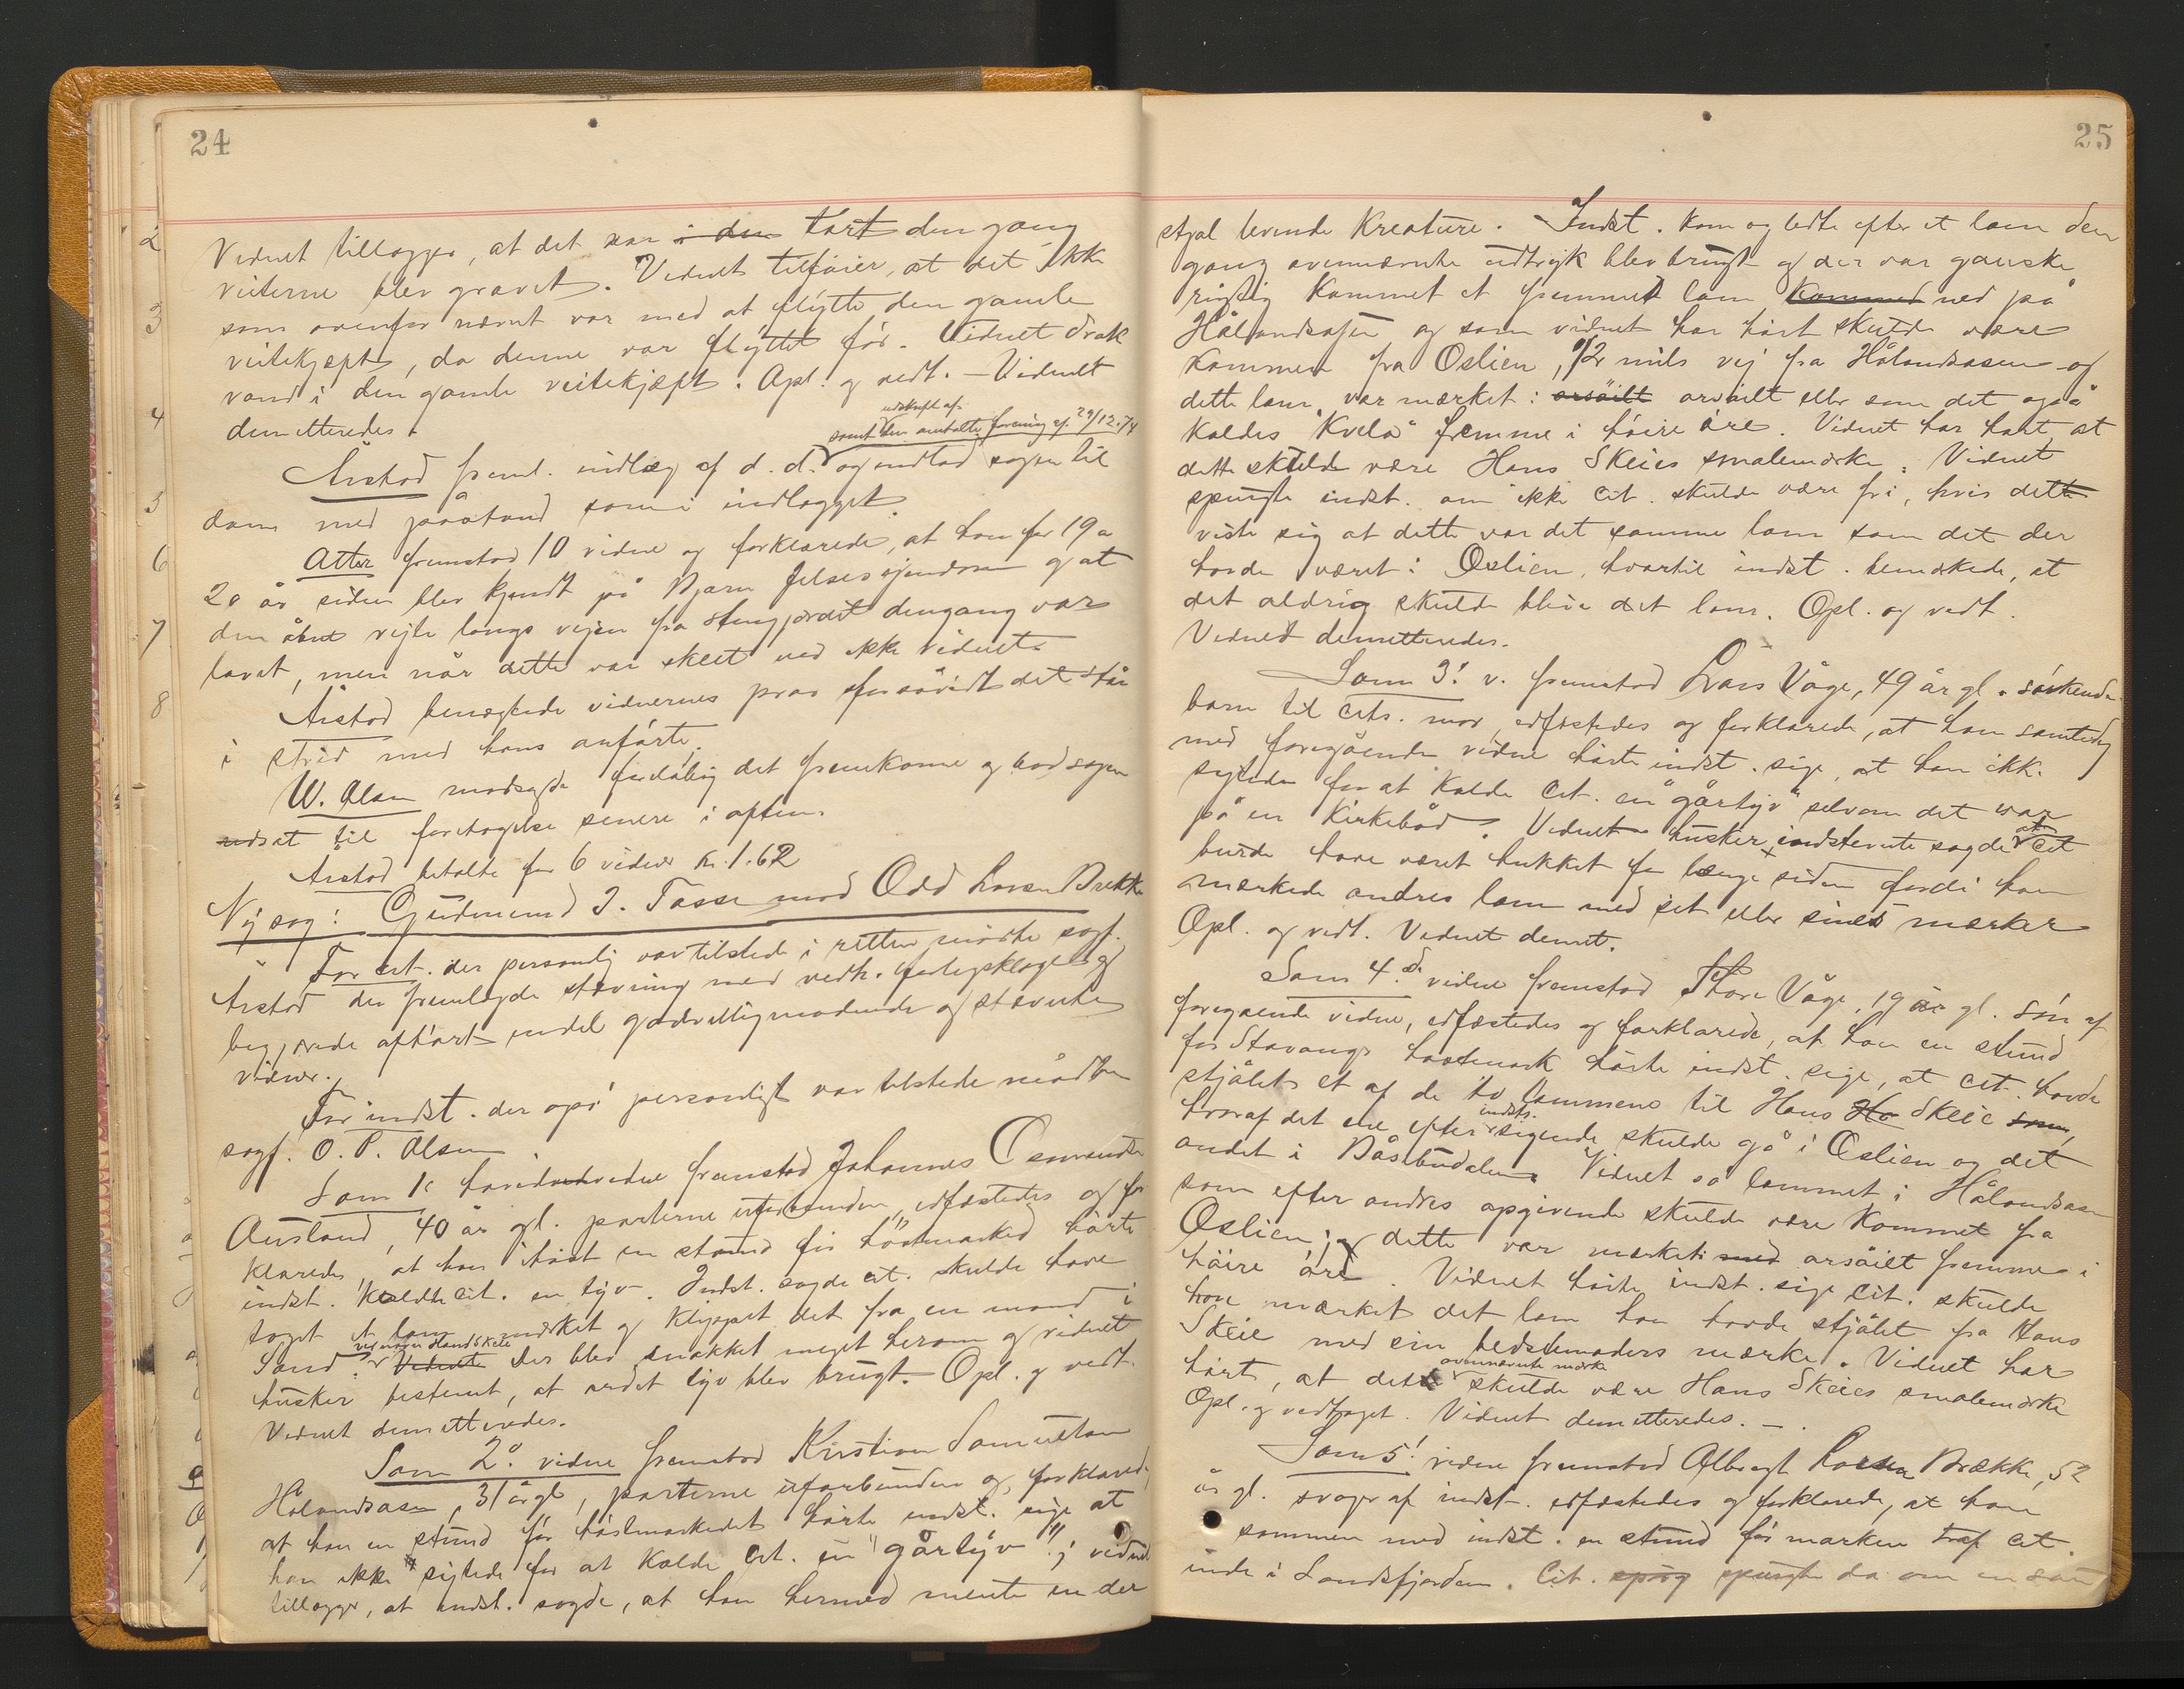 24
Vidnet tillægger, at det var i den tørt den gang
veiterne blev gravet. Vidnet tilføier, at det ikke
som ovenfor nævnt var med at flytte den gamle
veitekjæft, da denne var flyttet før. Vidnet drak
vand i den gamle veitekjæft. Opl. og vedt. - Vidnet
demitteredes.
udskrift af
samt den forening af 29/12.74
Årstad freml. indlæg af d. d. og indlod sagen til
dom med påstand som i indlægget.
Atter fremstod 10 vidne og forklarede, at han for 19 a
20 år siden blev kjendt på Bjarne Jelses ejendom og at
den åbne vejte langs vejen fra Stengjærdet dengang var
lavet, men når dette var skeet ved ikke vidnet.
Årstad benægtede vidnernes prov forsåvidt det står
i strid med hans anførte.
W. Olsen modsagde foreløbig det fremkomne og bad sagen
udsat til foretagelse senere i aften.
Årstad betalte for 6 vidner kr. 1.62
Ny sag: Gudmund J. Tasse mod Odd Larsen Brekke
For cit. der personlig var tilstede i retten mødte sagf.
Årstad der fremlagde stævning med vedh. forligsklage og
begjærede afhørt endel godvilligmødende og stævnte
vidner.
For indst. der også personligt var tilstede mødte
sagf. O. P. Olsen
Som 1e hovedvidne fremstod Johannes Osmundsen
Ausland, 40 år gl. parterne uforbunden, edfæstedes og for
klarede, at han i høst en stund før høstmarked hørte
indst. kaldte cit. en tyv. Indst. sagde cit. skulde have
taget et lam mærket og klippet det fra en mand i
Sand. Vidnet der blev snakket meget herom og vidnet
ved navn Hans Skeie
husker bestemt, at ordet tyv blev brugt. Opl. og vedt.
Vidnet demitteredes.
Som 2. vidne fremstod Kirstian Samuelsen
Hålandsåsen, 31 år gl, parterne uforbunden og forklarede,
at han en stund før høstmarkedet hørte indst. sige at
han ikke sigtede for at kalde cit. en "gårtyv"; vidnet
tillægger, at indst. sagde, at han hermed mente en der
25
stjal levende kreature. Indst. kom og ledte efter et lam den
gang ovennævnte udtryk blev brugt og der var ganske
rigtig kommet et fremmed lam kommed ned på
Hålandsåsen og som vidnet har hørt skulde være
kommen fra Oslien, 1/2 mils vej fra Hålandsåsen og
dette lam var mærket: arsøilt arsøilt eller som det også
kaldes "Kvela" fremme i høire øre. Vidnet har hørt, at
dette skulde være Hans Skeies smalemærke. Vidnet
spurgte indst. om ikke cit. skulde være fri, hvis dette
viste sig at dette var det samme lam som det der
havde været i Oslien, hvortil indst. bemærkede, at
det aldrig skulde blive det lam. Opl. og vedt.
Vidnet demitteredes.
Som 3! v. fremstod Lars Våge, 49 år gl. søskende
barn til cits. mor, edfæstedes og forklarede, at han samtidig
med foregående vidne hørte indst. sige, at han ikke
sigtede for at kalde cit. en "gårtyv" selvom det var
på en Kirkebåd. Vidnet husker, indstevnte sagde at cit
burde have været hukket for længe siden fordi han
mærkede andres lam med sit eller sines mærker
Opl. og vedt. Vidnet demit.
Som 4.de vidne fremstod Thore Våge, 19 år gl. søn af
foregaende vidne, edfæstedes og forklarede, at han en stund
før Stavangs høstmark hørte indst. sige, at cit. havde
stjålet et af de to lammene til Hans Ho Skeie som,
hvoraf det ene efter indsts. sigende skulde gå i Oslien og det
andet i Båsbudalen. Vidnet så lammet i Hålandsåsen
som efter andres opgivende skulde være kommet fra
Oslien; og dette var mærket: med arsøilt fremme i
høire øre. Vidnet hørte indst. sige cit. skulde
have mærket det lam han havde stjålet fra Hans
Skeie med sin bedstemoders mærke. Vidnet har
hørt, at dette ovennævnte mærke skulde være Hans Skeies smalemærke
Opl. og vedtaget. Vidnet demitteredes. -
Som 5! vidne fremstod Albregt Larsen Brække, 52
år gl. svoger af indst. edfæstedes og forklarede, at han
sammen med indst. en stund før marken traf cit.
inde i Sandsfjorden. Cit. spurg spurgte da om en sau
2
3
4
5
6
7
8